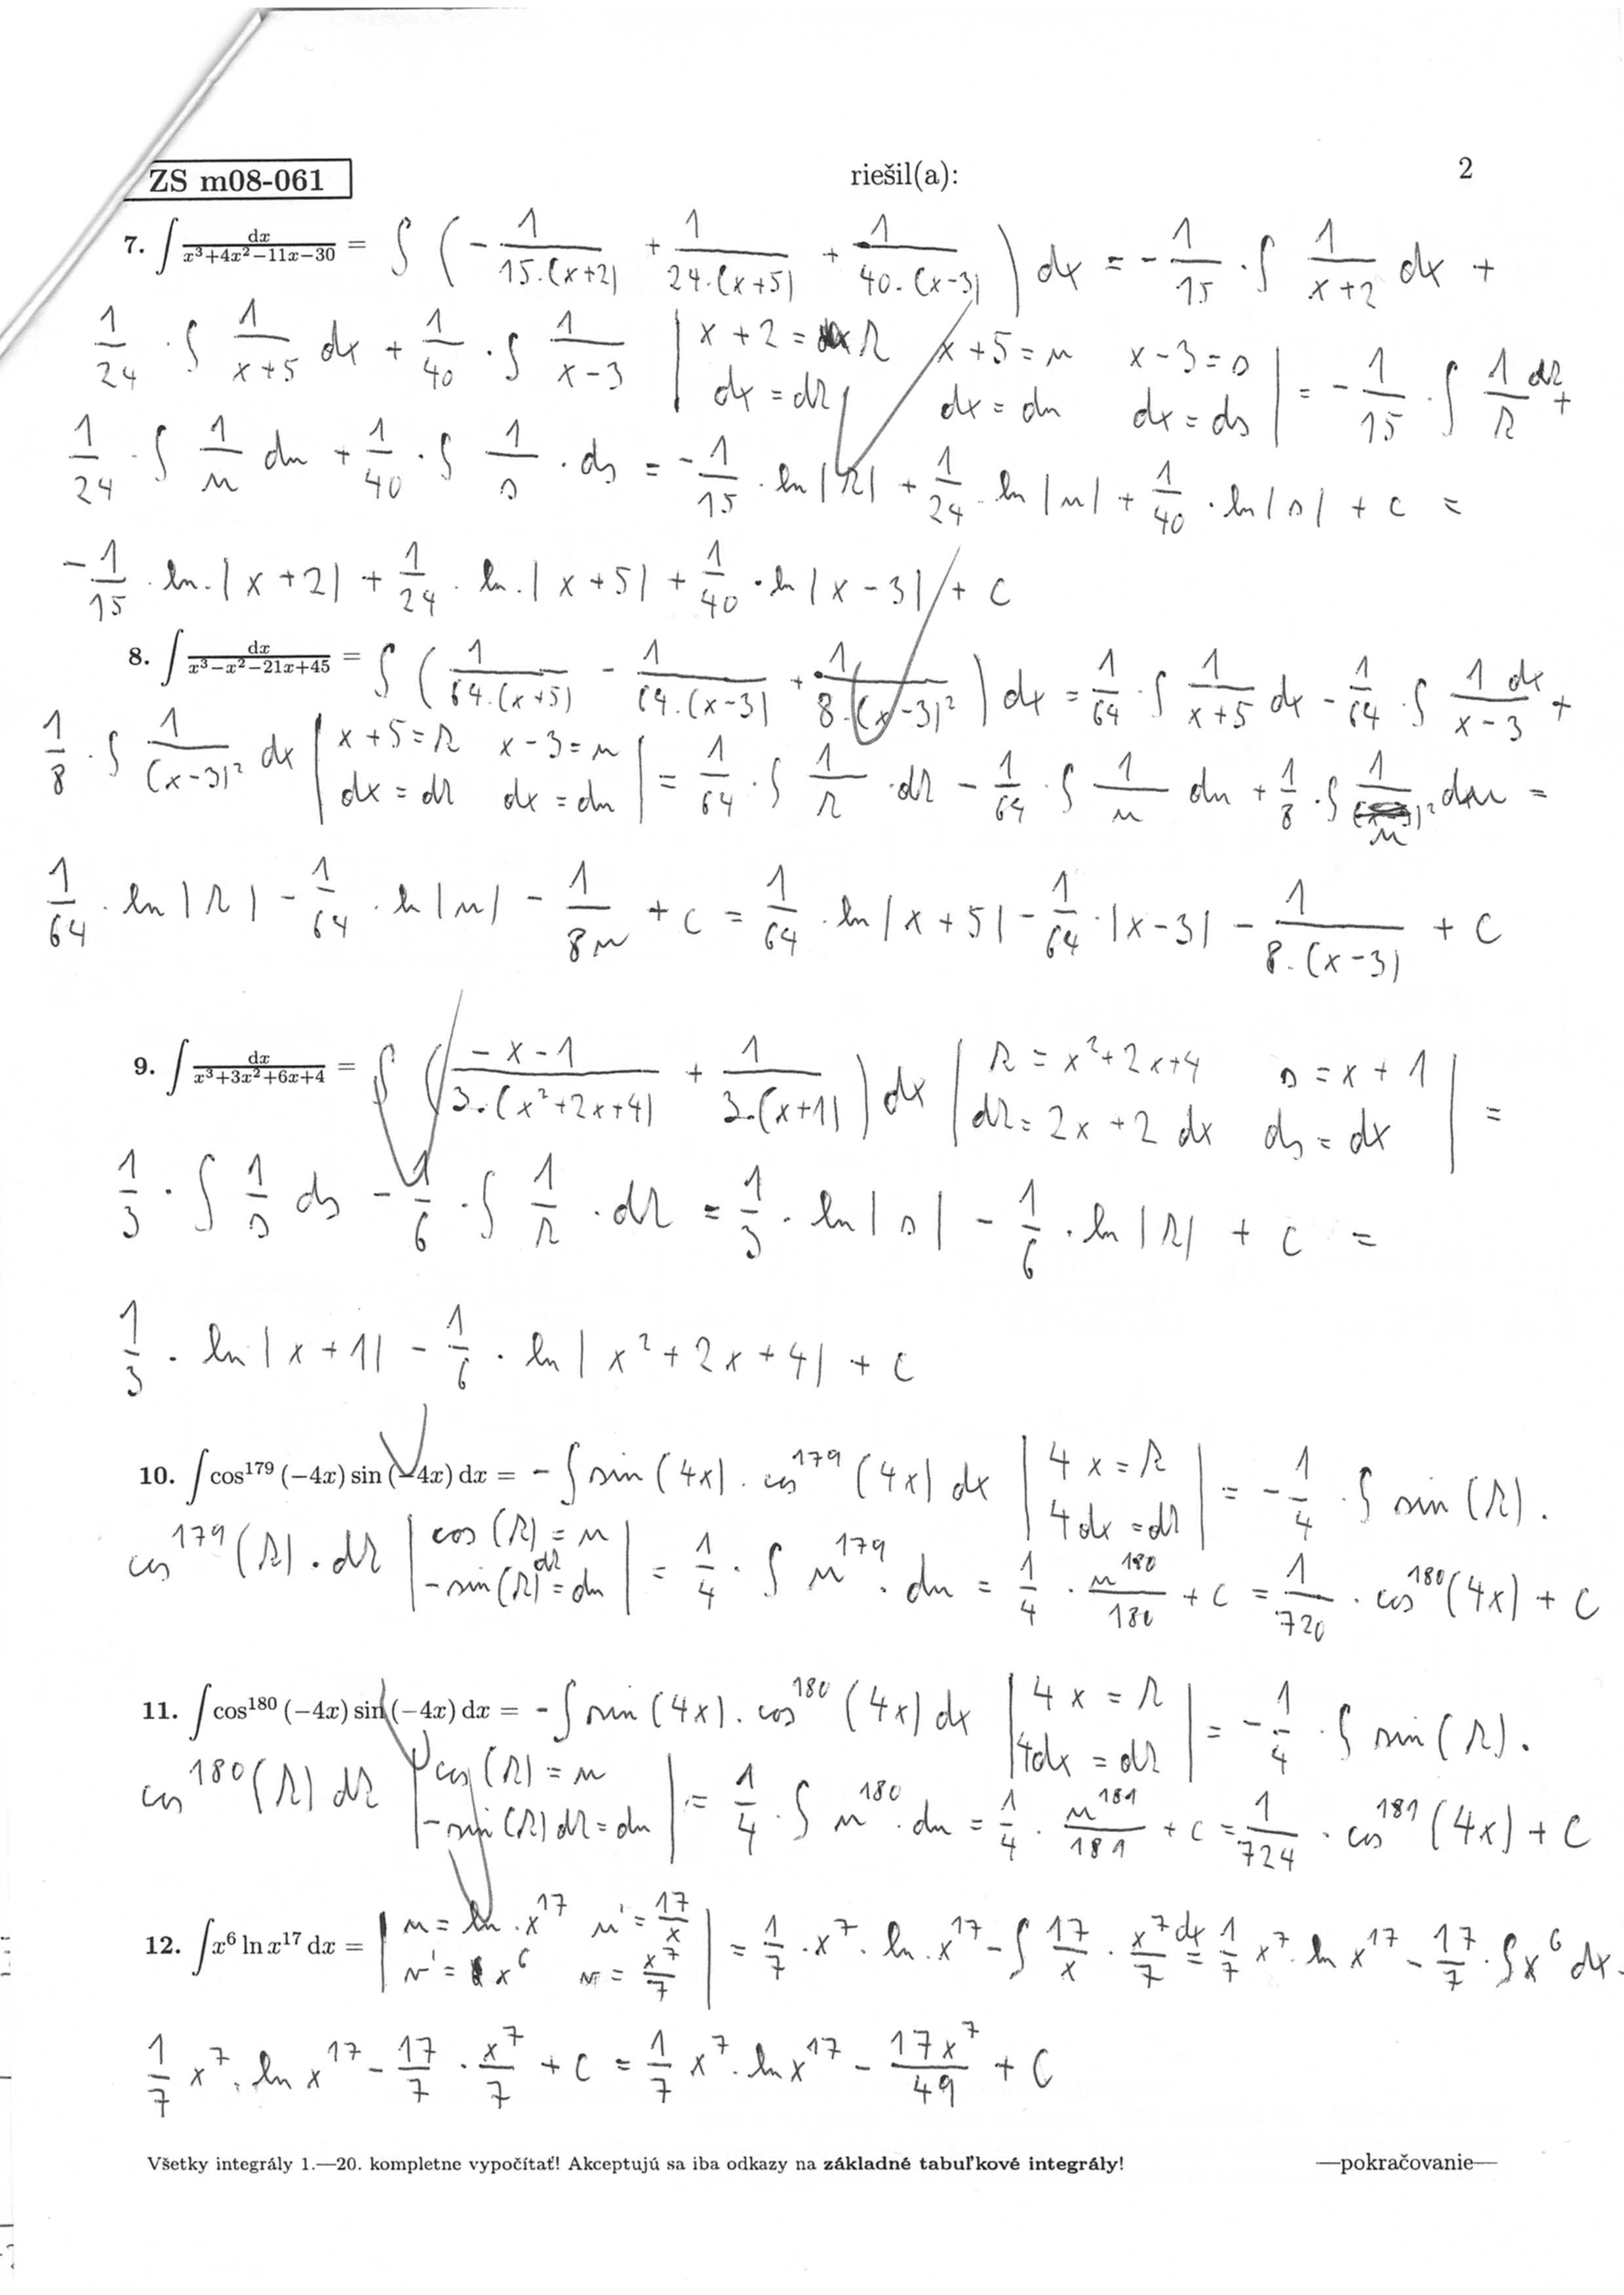 ZS m08-061 riešil(a): 2
7. ∫ dx/(x³+4x²−11x−30) = ∫ ( − 1/(15.(x+2)) + 1/(24.(x+5)) + 1/(40.(x−3)) ) dx = − 1/15 · ∫ 1/(x+2) dx +
1/24 · ∫ 1/(x+5) dx + 1/40 · ∫ 1/(x−3) | x+2 = r x+5 = u x−3 = s dx = dr dx = du dx = ds | = − 1/15 · ∫ 1/r dr +
1/24 · ∫ 1/u du + 1/40 · ∫ 1/s · ds = − 1/15 · ln|r| + 1/24 · ln|u| + 1/40 · ln|s| + c =
− 1/15 · ln.|x+2| + 1/24 · ln.|x+5| + 1/40 · ln|x−3| + c
8. ∫ dx/(x³−x²−21x+45) = ∫ ( 1/(64.(x+5)) − 1/(64.(x−3)) + 1/(8.(x−3)²) ) dx = 1/64 · ∫ 1/(x+5) dx − 1/64 · ∫ 1/(x−3) dx +
1/8 · ∫ 1/(x−3)² dx | x+5 = r x−3 = u dx = dr dx = du | = 1/64 · ∫ 1/r · dr − 1/64 · ∫ 1/u du + 1/8 · ∫ 1/u² du =
1/64 · ln|r| − 1/64 · ln|u| − 1/(8u) + c = 1/64 · ln|x+5| − 1/64 · |x−3| − 1/(8.(x−3)) + c
9. ∫ dx/(x³+3x²+6x+4) = ∫ ( (−x−1)/(3.(x²+2x+4)) + 1/(3.(x+1)) ) dx | r = x²+2x+4 s = x+1 dr = 2x+2 dx ds = dx | =
1/3 · ∫ 1/s ds − 1/6 · ∫ 1/r · dr = 1/3 · ln|s| − 1/6 · ln|r| + c =
1/3 · ln|x+1| − 1/6 · ln|x²+2x+4| + c
10. ∫ cos¹⁷⁹ (−4x) sin (−4x) dx = − ∫ sin(4x) . cos¹⁷⁹ (4x) dx | 4x = r 4dx = dr | = − 1/4 · ∫ sin(r) .
cos¹⁷⁹(r) . dr | cos(r) = u −sin(r) dr = du | = 1/4 · ∫ u¹⁷⁹ . du = 1/4 · u¹⁸⁰/180 + c = 1/720 · cos¹⁸⁰(4x) + c
11. ∫ cos¹⁸⁰ (−4x) sin (−4x) dx = − ∫ sin(4x) . cos¹⁸⁰ (4x) dx | 4x = r 4dx = dr | = − 1/4 · ∫ sin(r) .
cos¹⁸⁰(r) dr | cos(r) = u −sin(r) dr = du | = 1/4 · ∫ u¹⁸⁰ . du = 1/4 · u¹⁸¹/181 + c = 1/724 · cos¹⁸¹(4x) + c
12. ∫ x⁶ ln x¹⁷ dx = | u = ln . x¹⁷ u' = 17/x v' = x⁶ v = x⁷/7 | = 1/7 · x⁷ . ln . x¹⁷ − ∫ 17/x · x⁷/7 dx = 1/7 x⁷ . ln x¹⁷ − 17/7 · ∫ x⁶ dx
1/7 x⁷ . ln x¹⁷ − 17/7 · x⁷/7 + c = 1/7 x⁷ . ln x¹⁷ − 17x⁷/49 + c
Všetky integrály 1.—20. kompletne vypočítať! Akceptujú sa iba odkazy na základné tabuľkové integrály! —pokračovanie—